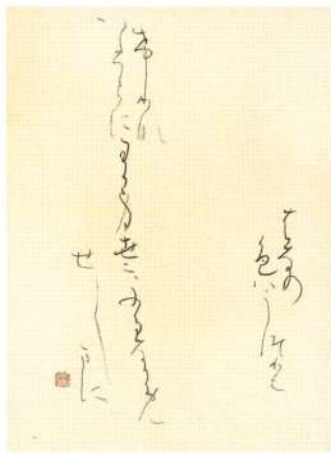 はなの
色はうつりに
けりな
いたつらにわか身世にふるなかめ
せしまに